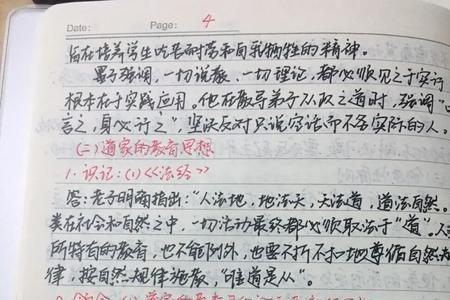 Date:    Page: 4
旨在培养学生吃苦耐劳和自我牺牲的精神。
墨子强调,一切说教、一切理论,都必顺见之于实行
根本在于实践应用。他在教导弟子从政之道时,强调“口
言之,身必行之”,坚决反对只说空话而不务实际的人。
(二)道家的教育思想
1.识记:(1)《法经》
答:老子明确指出:“人法地,地法天,天法道,道法自然。
类在社会和自然之中,一切活动最终都必顺取法于“道”。人
所特有的教育,也不能例外,也要不折不扣地尊循自然规
律,按自然规律施教,“唯道是从”。